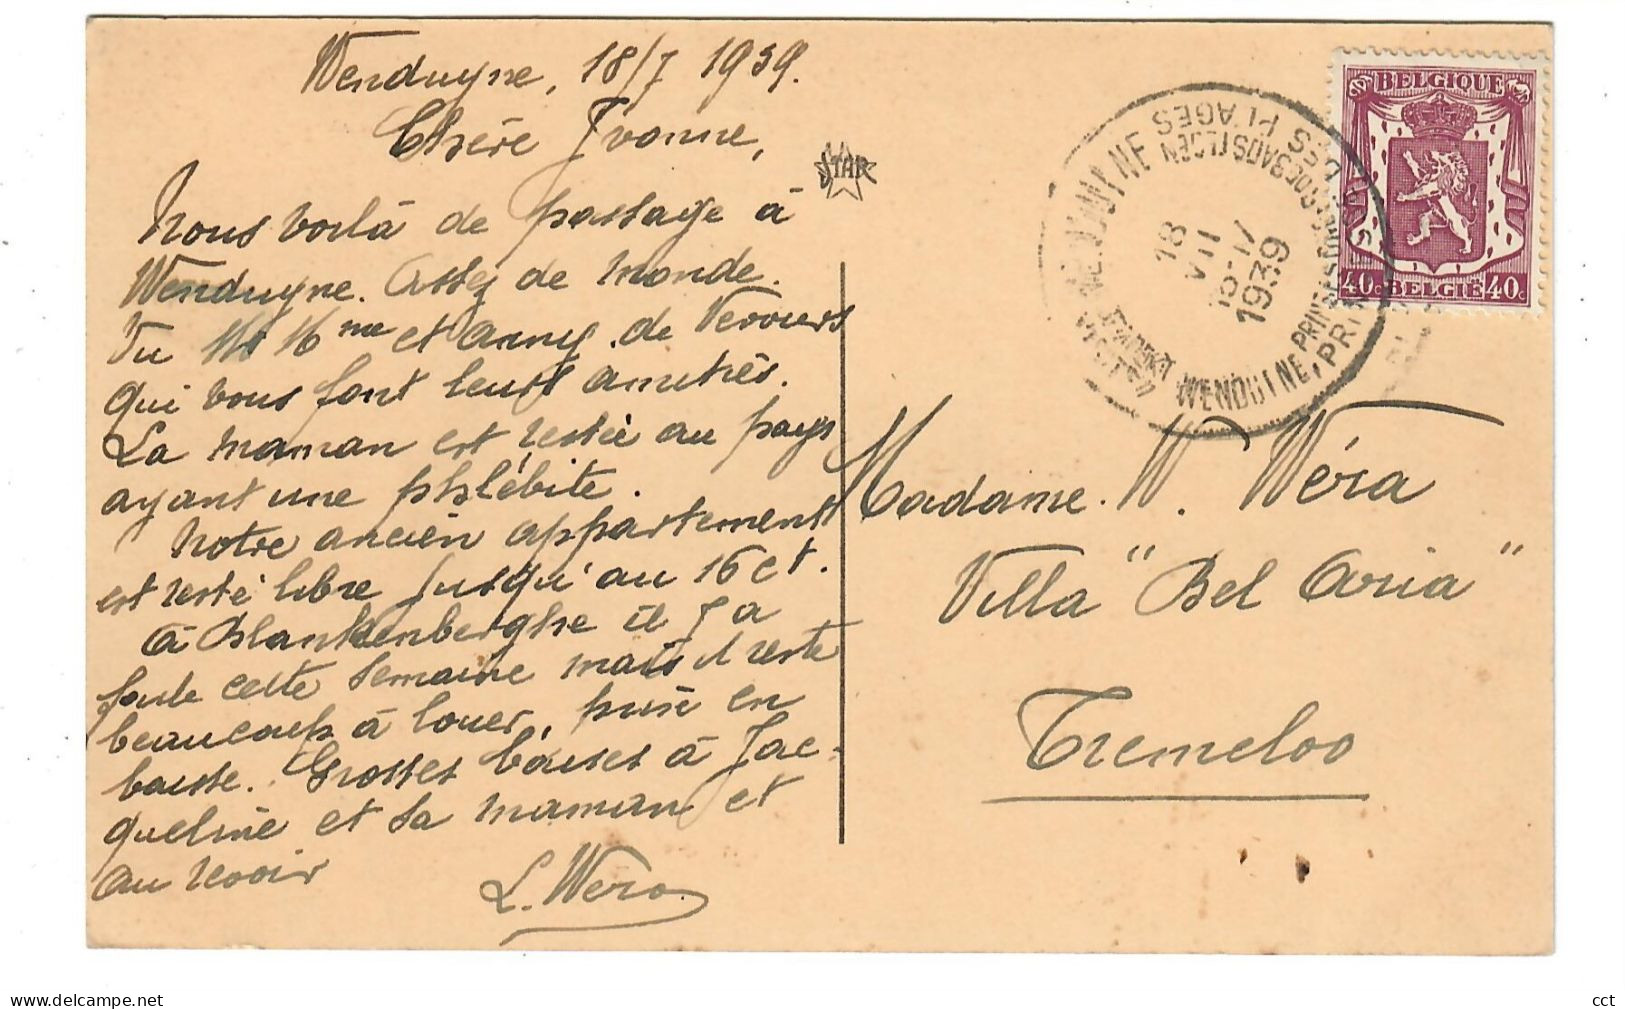 Wenduyne, 18/7 1939.
Chère Yvonne,
Nous voilà de passage à
Wenduyne. Assez de monde.
Vu M 16 me et Anny de Verviers
qui vous font leurs amitiés.
La maman est restée au pays
ayant une phlébite.
Notre ancien appartement
est resté libre jusqu'au 16 ct.
à Blankenberghe il y a
foule cette semaine mais il reste
beaucoup à louer, prix en
baisse. Grosses baises à Jac-
queline et sa maman et
au revoir
L. Wera
STAR
BELGIQUE
40c BELGIË 40c
WENDUINE
18
VII
1939
WENDUINE, PRIN
DES PLAGES
Madame. W. Wéra
Villa "Bel Aria"
Tremeloo
cct